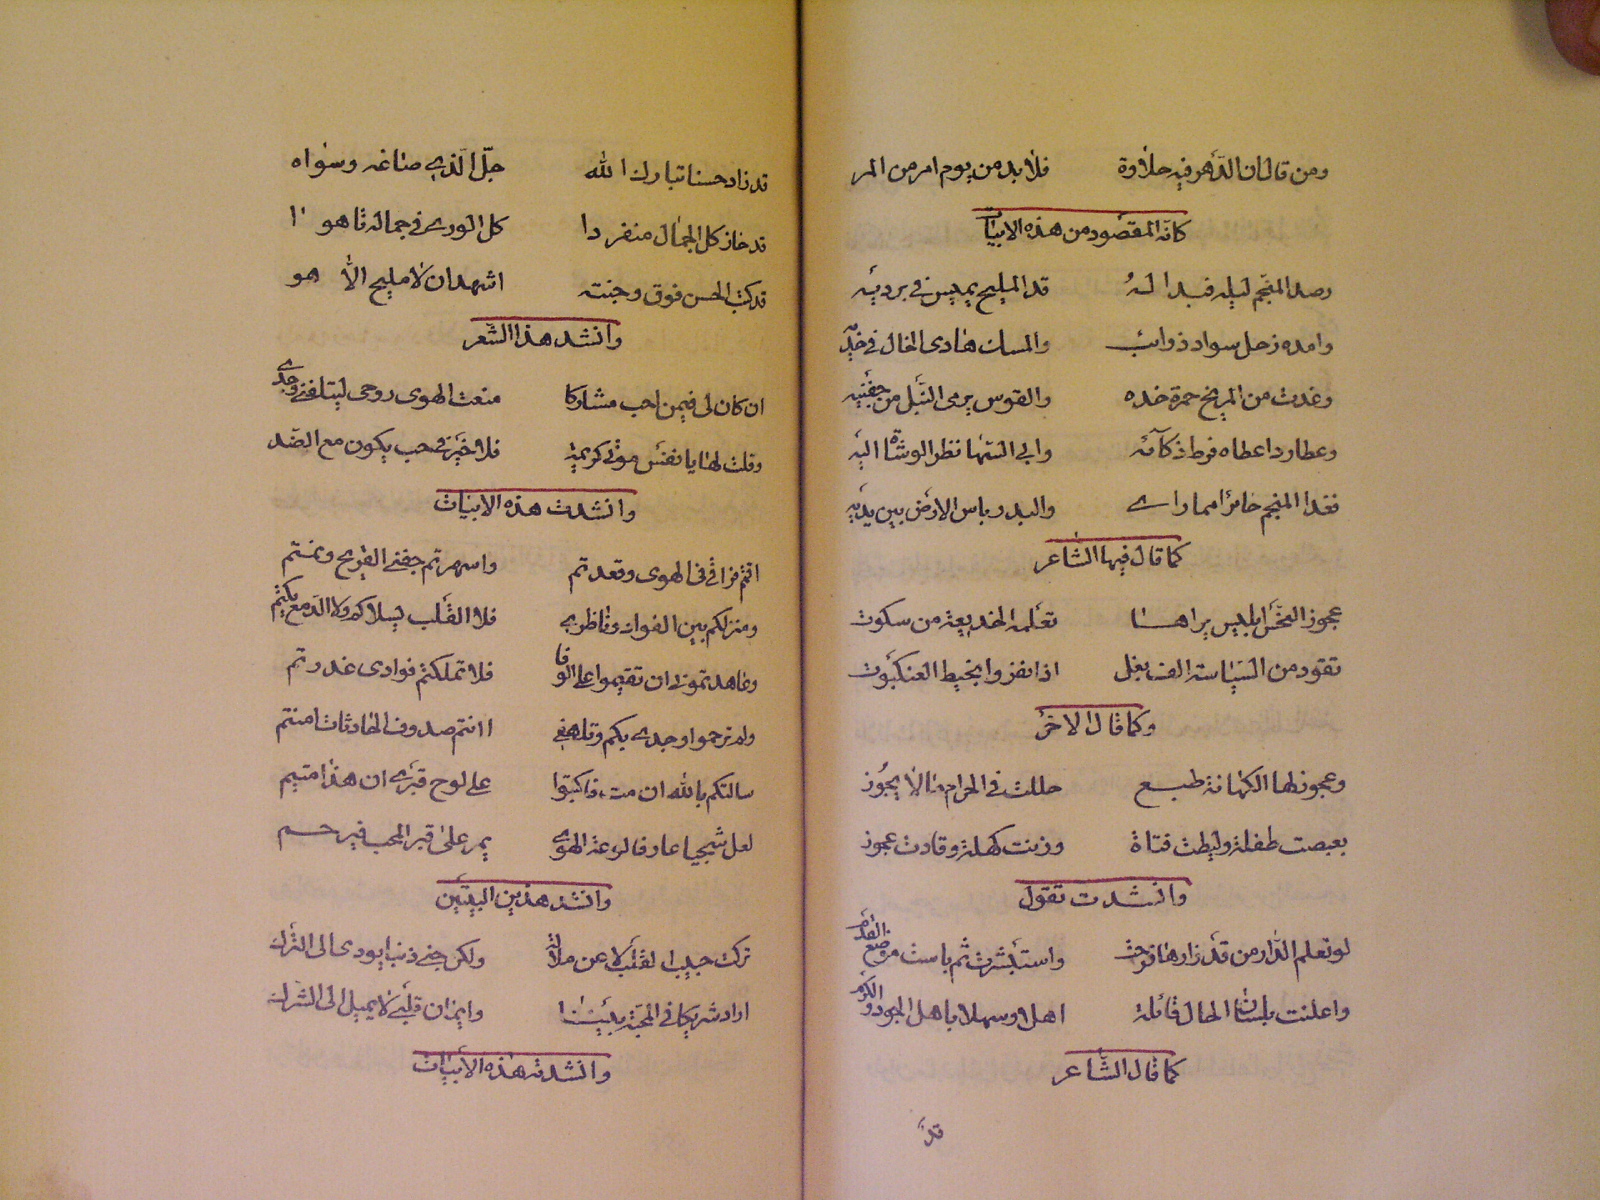 ومن قال ان الدهر فيه حلاوة فلا بد من يوم امر من المر
كانه المقصود من هذه الابيات
رصد المنجم ليله فبدا له قد المليح يميس في برديه
وامده زحل سواد ذوائب والمسك هادى الخال في خديه
وغدت من المريخ حمرة خده والقوس يرمى النبل من جفنيه
وعطارد اعطاه فرط ذكآئه وابي السها نظر الوشاة اليه
فغدا المنجم حائرا مما راى والبدر باس الارض بين يديه
كما قال فيها الشاعر
عجوز النحس ابليس يراها تعلمه الخديعة من سكوت
تقود من السياسة الف بغل اذا نفزوا بخيط العنكبوت
وكما قال الاخر
وعجوز لها الكهانة طبع حللت في الحرام مالا يجوز
بعبصت طفلة وليطت فتاة وزنت كهلة وقادت عجوز
وانشدت تقول
لو تعلم الدار من قد زارها فرحت واستبشرت ثم باست موضع القدم
واعلنت بلسان الحال قائلة اهلا وسهلا باهل الجود والكرم
كما قال الشاعر
قد
قد زاد حسنا تبارك الله جل الذى صاغه وسواه
قد حاز كل الجمال منفردا كل الورى في جماله تاهوا
قد كتب الحسن فوق وجنته اشهد ان لا مليح الا هو
وانشد هذا الشعر
ان كان لى فيمن احب مشاركا منعت الهوى روحى ليتلفنى وجدى
وقلت لها يا نفس موتى كريمة فلا خير في حب يكون مع الضد
وانشدت هذه الابيات
اقتم فراقى فى الهوى وقعدتم واسهرتم جفنى القريح ونمتم
ومنزلكم بين الفواد وناظرى فلا القلب يسلاكم ولا الدمع يكتم
وعاهدتمونى ان تقيموا على الوفا فلا تملكتم فوادى غدرتم
ولم ترحموا وجدى بكم وتلهفى اانتم صروف الحادثات امنتم
سالتكم بالله ان مت فاكتبوا على لوح قبرى ان هذا متيم
لعل شجيا عارفا لوعة الهوى يمر على قبر المحب فيرحم
وانشد هذين البيتين
تركت حبيب القلب لا عن ملالة ولكن جنى ذنبا يودى الى الترك
اراد شريكا في المحبة بيننا وايمان قلبى لا يميل الى الشرك
وانشدته هذه الابيات